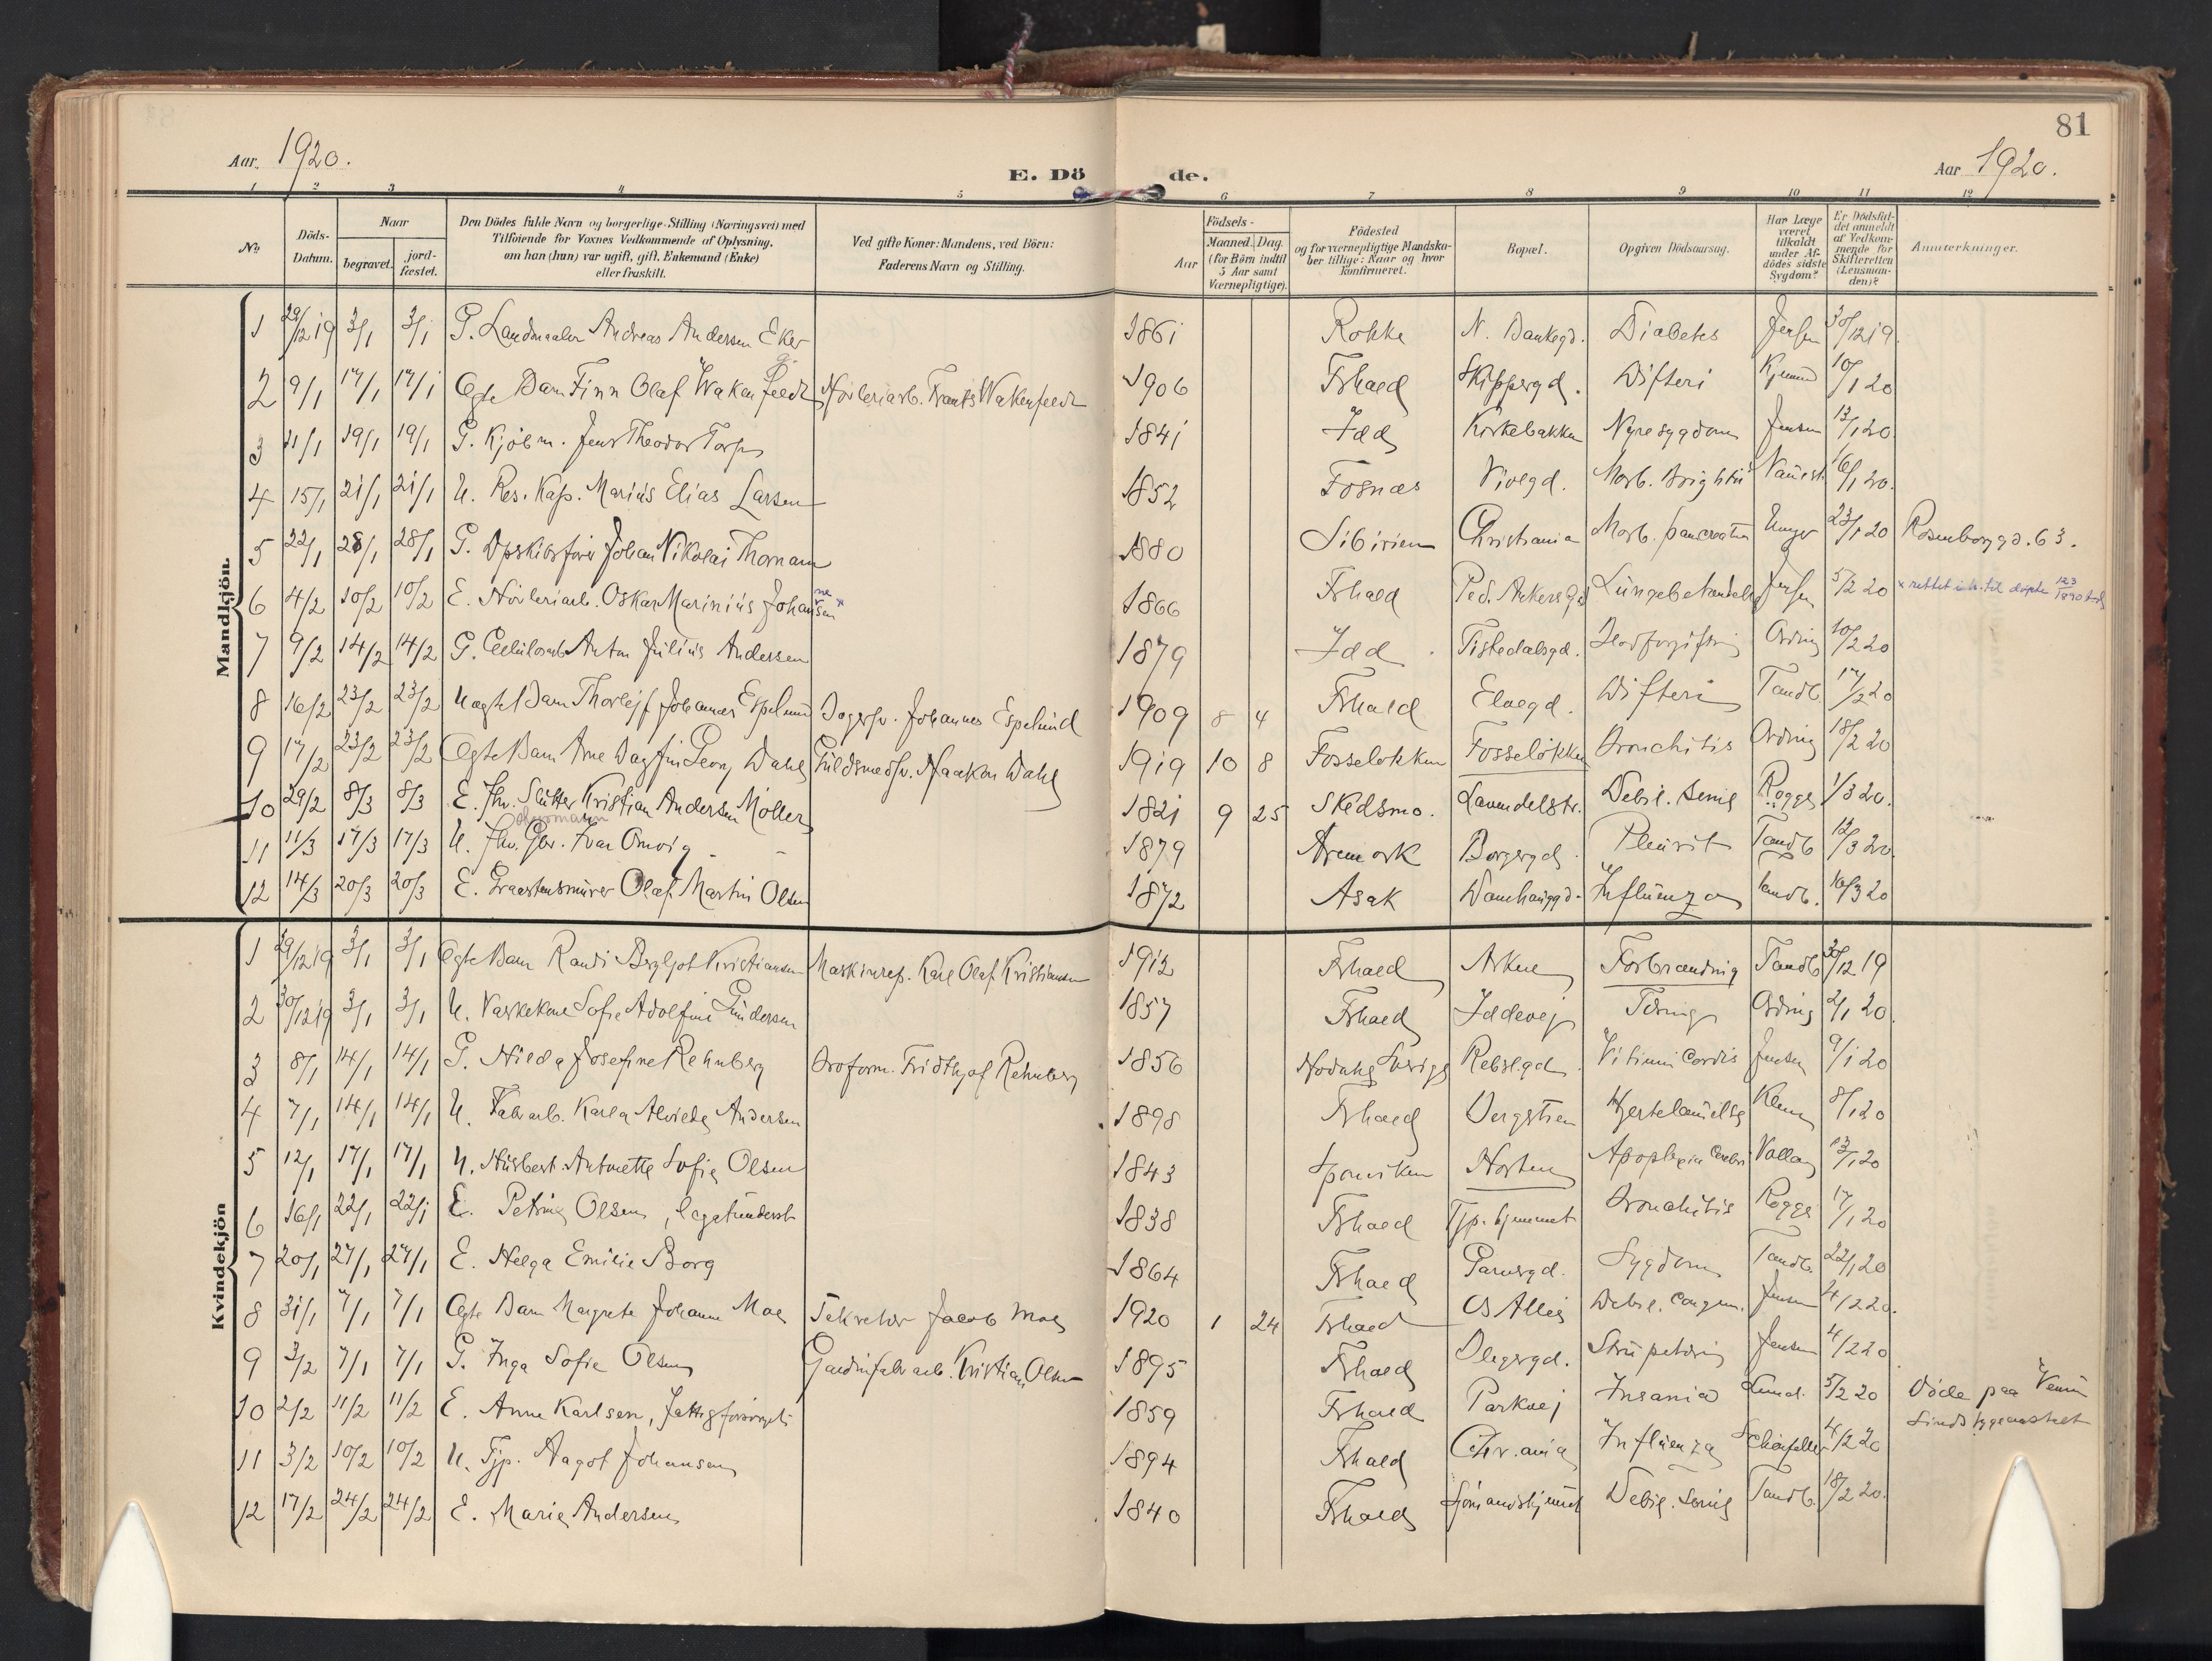 81
Aar 1920.
E. Dö de.
Aar 1920.
1 2 3 4 5 6 7 8 9 10 11 12
No.
Döds-Datum.
Naar
begravet.
jord-fæstet.
Den Dödes fulde Navn og borgerlige Stilling (Næringsvei) med
Tilföiende for Voxnes Vedkommende af Oplysning,
om han (hun) var ugift, gift, Enkemand (Enke)
eller fraskilt.
Ved gifte Koner: Mandens, ved Börn:
Faderens Navn og Stilling.
Födsels-
Aar
Maaned. Dag.
(for Börn indtil
5 Aar samt
Værnepligtige).
Födested
og for værnepligtige Mandska-
ber tillige: Naar og hvor
konfirmeret.
Bopæl.
Opgiven Dödsaarsag.
Har Læge
været
tilkaldt
under Af-
dödes sidste
Sygdom?
Er Dödsfal-
det anmeldt
af Vedkom-
mende for
Skifteretten
(Lensman-
den)?
Anmærkninger.
Mandkjön.
1 29/12 19 3/1 3/1 G. Landmaaler Andreas Andersen Eker 1861 Rokke N. Bankegd. Diabetes Jensen 30/12 19.
2 9/1 17/1 17/1 Ægte Barn Finn Olaf Wakenfeldt Frants Wakenfeldt 1906 Frhald Skippergd. Difteri 10/1 20
3 11/1 19/1 19/1 G. Kjöbm. Jens Theodor Torp 1841 Idd Kirkebakken Nyresygdom Jensen 13/1 20.
4 15/1 21/1 21/1 U. Res. Kap. Marius Elias Larsen 1852 Fosnæs Violgd. Morb. Brightii 16/1 20.
5 22/1 28/1 28/1 G. Johan Nikolai Thornam 1880 Sibirien Christiania Morb. pancreatin Unger 23/1 20 Rosenborggd. 63.
6 4/2 10/2 10/2 E. Oskar Marinius Johansen x 1866 Frhald Ped. Ankers Gd Lungebetændelse Jensen 5/2 20 x rettet til døpte 123/1890
7 9/2 14/2 14/2 G. Anton Julius Andersen 1879 Idd Tistedalsgd. Blodforgiftning Ording 10/2 20
8 16/2 23/2 23/2 Uægte Barn Thorleif Johannes Espelund Bagersv. Johannes Espelund 1909 8 4 Frhald Elvegd. Difteri Tandb. 17/2 20
9 17/2 23/2 23/2 Ægte Barn Arne Dagfin Georg Dahl Guldsmedsv. Haakon Dahl 1919 10 8 Fosselökken Fosselökken Bronchitis Ording 18/2 20
10 29/2 8/3 8/3 E. Fhv. Slutter Kristian Andersen Möller 1821 9 25 Skedsmo. Lavendelstr. Debil. senil Rogge 1/3 20.
11 11/3 17/3 17/3 U. Fhv. Gbr. Ivar Omvig 1879 Aremark Borgergd. Pleurit Tandb 12/3 20.
12 14/3 20/3 20/3 E. Graastensmurer Olaf Martin Olsen 1872 Asak Damhauggd. Influenza Tandb. 16/3 20
Kvindekjön
1 29/12 19 3/1 3/1 Ægte Barn Randi Bergljot Kristiansen Maskinrep. Karl Olaf Kristiansen 1912 Frhald Asken Forbrænding Tandb 30/12 19
2 30/12 19 3/1 3/1 U. Vaskekone Sofie Adolfine Gundersen 1857 Frhald Iddevej Tæring Ording 2/1 20.
3 8/1 14/1 14/1 G. Hilda Josefine Rehnberg Broform. Fridthjof Rehnberg 1856 Rebslgd. Vitium Cordis Jensen 9/1 20
4 7/1 14/1 14/1 U. Fabarb. Karla Alvilde Andersen 1898 Frhald Bergstien Hjertelammelse Klem 8/1 20
5 12/1 17/1 17/1 U. Husbest. Antonette Sofie Olsen 1843 Sponviken Horten Apoplexia Cerebri 13/1 20
6 16/1 22/1 22/1 E. Petrine Olsen, legatunderst. 1838 Frhald Tjp. hjemmet Bronchitis Rogge 17/1 20
7 20/1 27/1 27/1 E. Helga Emilie Borg 1864 Frhald Garvergd. Sygdom Tandb. 22/1 20
8 31/1 7/1 7/1 Ægte Barn Margrete Johanne Moe Sekretær Jacob Moe 1920 1 24 Frhald Os Allé Debil. congen. Jensen 4/2 20.
9 3/2 7/1 7/1 G. Inga Sofie Olsen Gardinfabrarb. Kristian Olsen 1895 Frhald Olegsgd. Strupetæring Jensen 4/2 20
10 2/2 11/2 11/2 E. Anne Karlsen, Fattigforsörget 1859 Frhald Parkvej Insania Lund. 5/2 20 Döde paa Sindssygeanstalt
11 3/2 10/2 10/2 U. Tjp. Aagot Johansen 1894 Frhald Chr.ania Influenza 4/2 20
12 17/2 24/2 24/2 E. Marie Andersen 1840 Frhald Sjömandshjemmet Debil. Senil Tandb. 18/2 20.